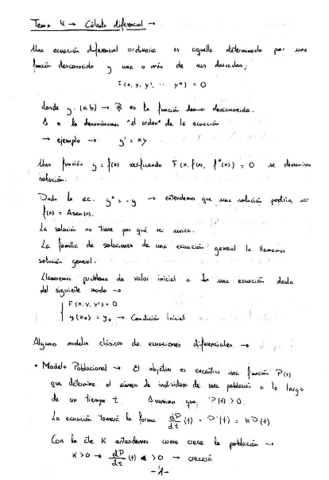 Tema 4 → Cálculo diferencial →
Una ecuación diferencial ordinaria es aquella determinada por una
función desconocida y una o más de sus derivadas;
F(x, y, y', ... yⁿ) = 0
donde y: (a,b) → ℝ es la función desconocida.
A n le denominamos "el orden" de la ecuación
→ ejemplo → y' = xy
Una función y = f(x) verificando F(x, f(x), fⁿ(x)) = 0 se denomina
solución.
Dada la ec. y'' = -y → entendemos que una solución podría ser
f(x) = A sen(x).
La solución no tiene por qué ser única.
La familia de soluciones de una ecuación general la llamamos
solución general.
Llamaremos problema de valor inicial a una ecuación dada
del siguiente modo →
F(x, y, y') = 0
y(x₀) = y₀ → Condición Inicial
Algunos modelos clásicos de ecuaciones diferenciales →
• Modelo Poblacional → El objetivo es encontrar una función P(t)
que determine el número de individuos de una población a lo largo
de un tiempo t. Asumimos que P(t) > 0.
La ecuación tomará la forma dP/dt (t) = P'(t) = K P(t)
Con la cte K entendemos como crece la población →
K > 0 → dP/dt (t) > 0 → crecerá
-1-